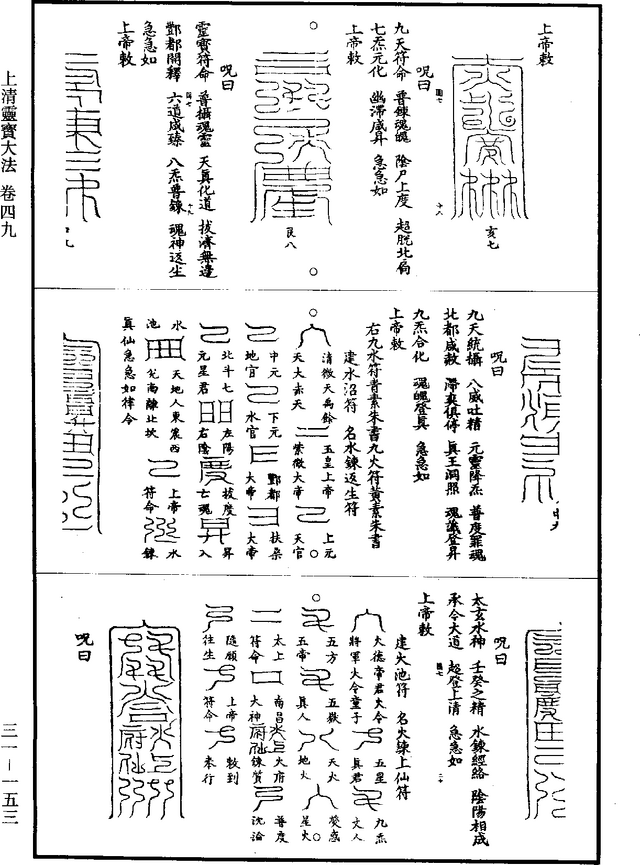 上清靈寶大法 卷四九
三一－一五三
上帝敕
亥七
咒曰
九天符命 普鍊魂魄 陰尸上度 超脫北局
七炁元化 幽滯咸昇 急急如
上帝敕
艮八
咒曰
靈寶符命 普攝魂靈 天真化道 拔濟無邊
酆都開釋 六道咸臻 八炁普鍊 魂神返生
急急如
上帝敕
中九
咒曰
九天統攝 八威吐精 元靈降炁 普度罪魂
北都咸赦 滯爽俱停 真王洞照 魂識登昇
九炁合化 魂魄登真 急急如
上帝敕
右九水符青素朱書九火符黃素朱書
建水沼符 名水鍊返生符
清微天禹餘
天大赤天
五皇上帝
紫微大帝
上元
天官
中元
地官
下元
水官
酆都
大帝
扶桑
大帝
北斗七
元星君
左陽
右陰
拔度
亡魂
昇
入
水
池
天地人東震西
兌南離北坎
上帝
符命
水
鍊
真仙急急如律令
咒曰
太玄水神 壬癸之精 水鍊經絡 陰陽相成
承令大道 超登上清 急急如
上帝敕
建火池符 名火鍊上仙符
火德帝君火令
將軍火令童子
五星
真君
九炁
丈人
五方
五帝
五嶽
真人
天火
地火
熒惑
星火
太上
符命
南昌
大神
火府
鍊質
普度
沈淪
隨願
往生
上帝
符命
敕到
奉行
咒曰